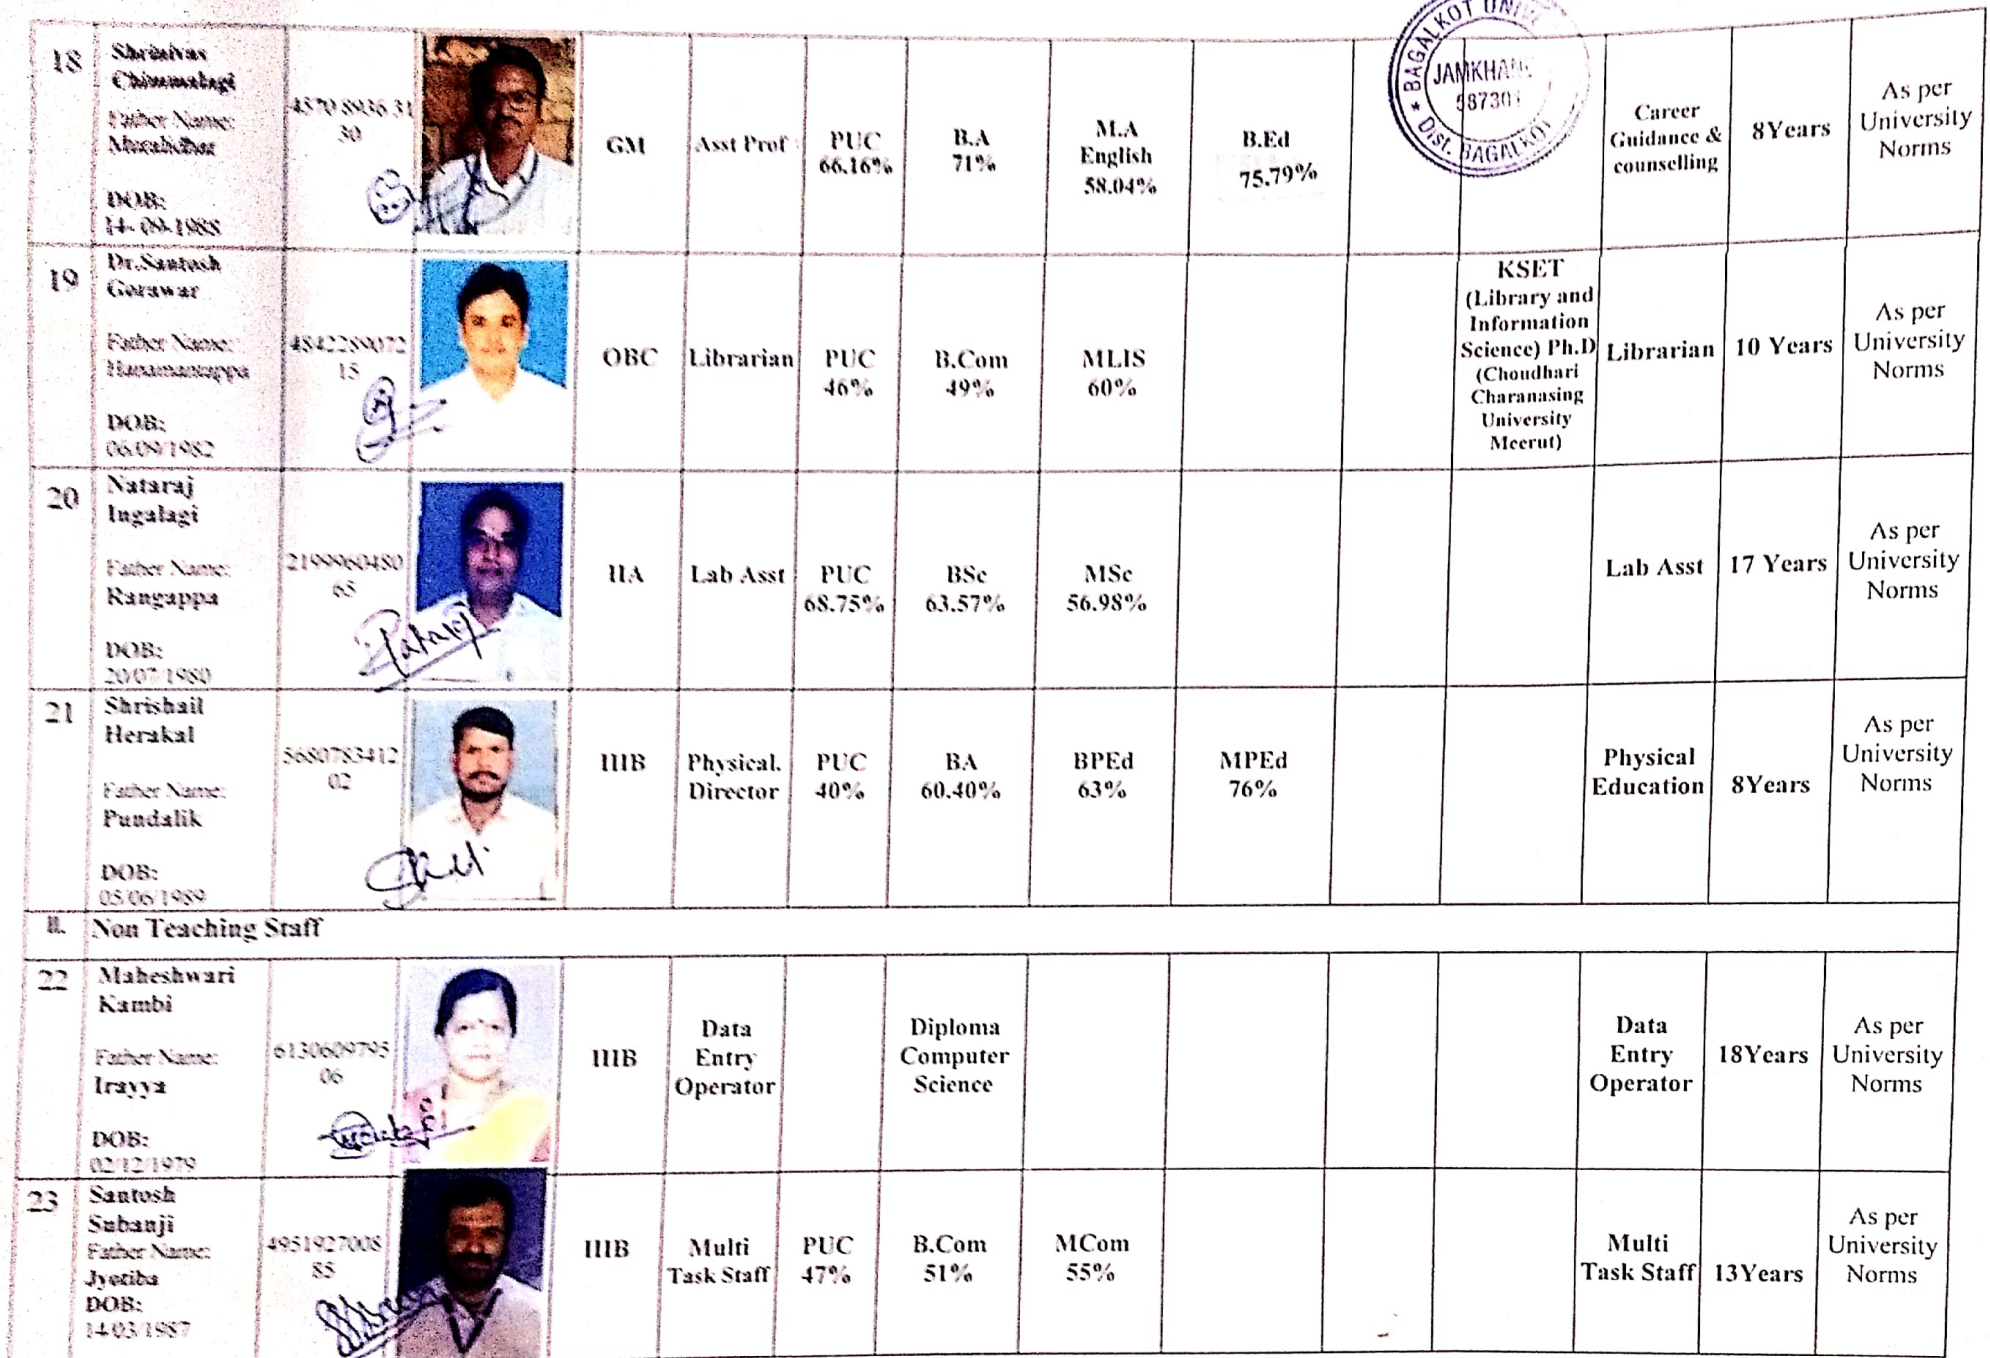 BAGALKOT UNIVE
JAMKHAN
587301
Dist. BAGALKOT
18
Shrinivas
Chimmalagi
Father Name:
Muralidhar
DOB:
14- 09-1988
4370 8936 31
30
GM
Asst Prof
PUC
66.16%
B.A
71%
M.A
English
58.04%
B.Ed
75.79%
Career
Guidance &
counselling
8Years
As per
University
Norms
19
Dr.Santosh
Gorawar
Father Name:
Hanamantappa
DOB:
06/09/1982
4842289072
15
OBC
Librarian
PUC
46%
B.Com
49%
MLIS
60%
KSET
(Library and
Information
Science) Ph.D
(Choudhari
Charanasing
University
Meerut)
Librarian
10 Years
As per
University
Norms
20
Nataraj
Ingalagi
Father Name:
Rangappa
DOB:
20/07/1980
2199960480
65
IIA
Lab Asst
PUC
68.75%
BSc
63.57%
MSc
56.98%
Lab Asst
17 Years
As per
University
Norms
21
Shrishail
Herakal
Father Name:
Pundalik
DOB:
05/06/1989
5680783412
02
IIIB
Physical.
Director
PUC
40%
BA
60.40%
BPEd
63%
MPEd
76%
Physical
Education
8Years
As per
University
Norms
II. Non Teaching Staff
22
Maheshwari
Kambi
Father Name:
Irayya
DOB:
02/12/1979
6130609795
06
IIIB
Data
Entry
Operator
Diploma
Computer
Science
Data
Entry
Operator
18Years
As per
University
Norms
23
Santosh
Subanji
Father Name:
Jyotiba
DOB:
14/03/1987
4951927008
85
IIIB
Multi
Task Staff
PUC
47%
B.Com
51%
MCom
55%
Multi
Task Staff
13Years
As per
University
Norms